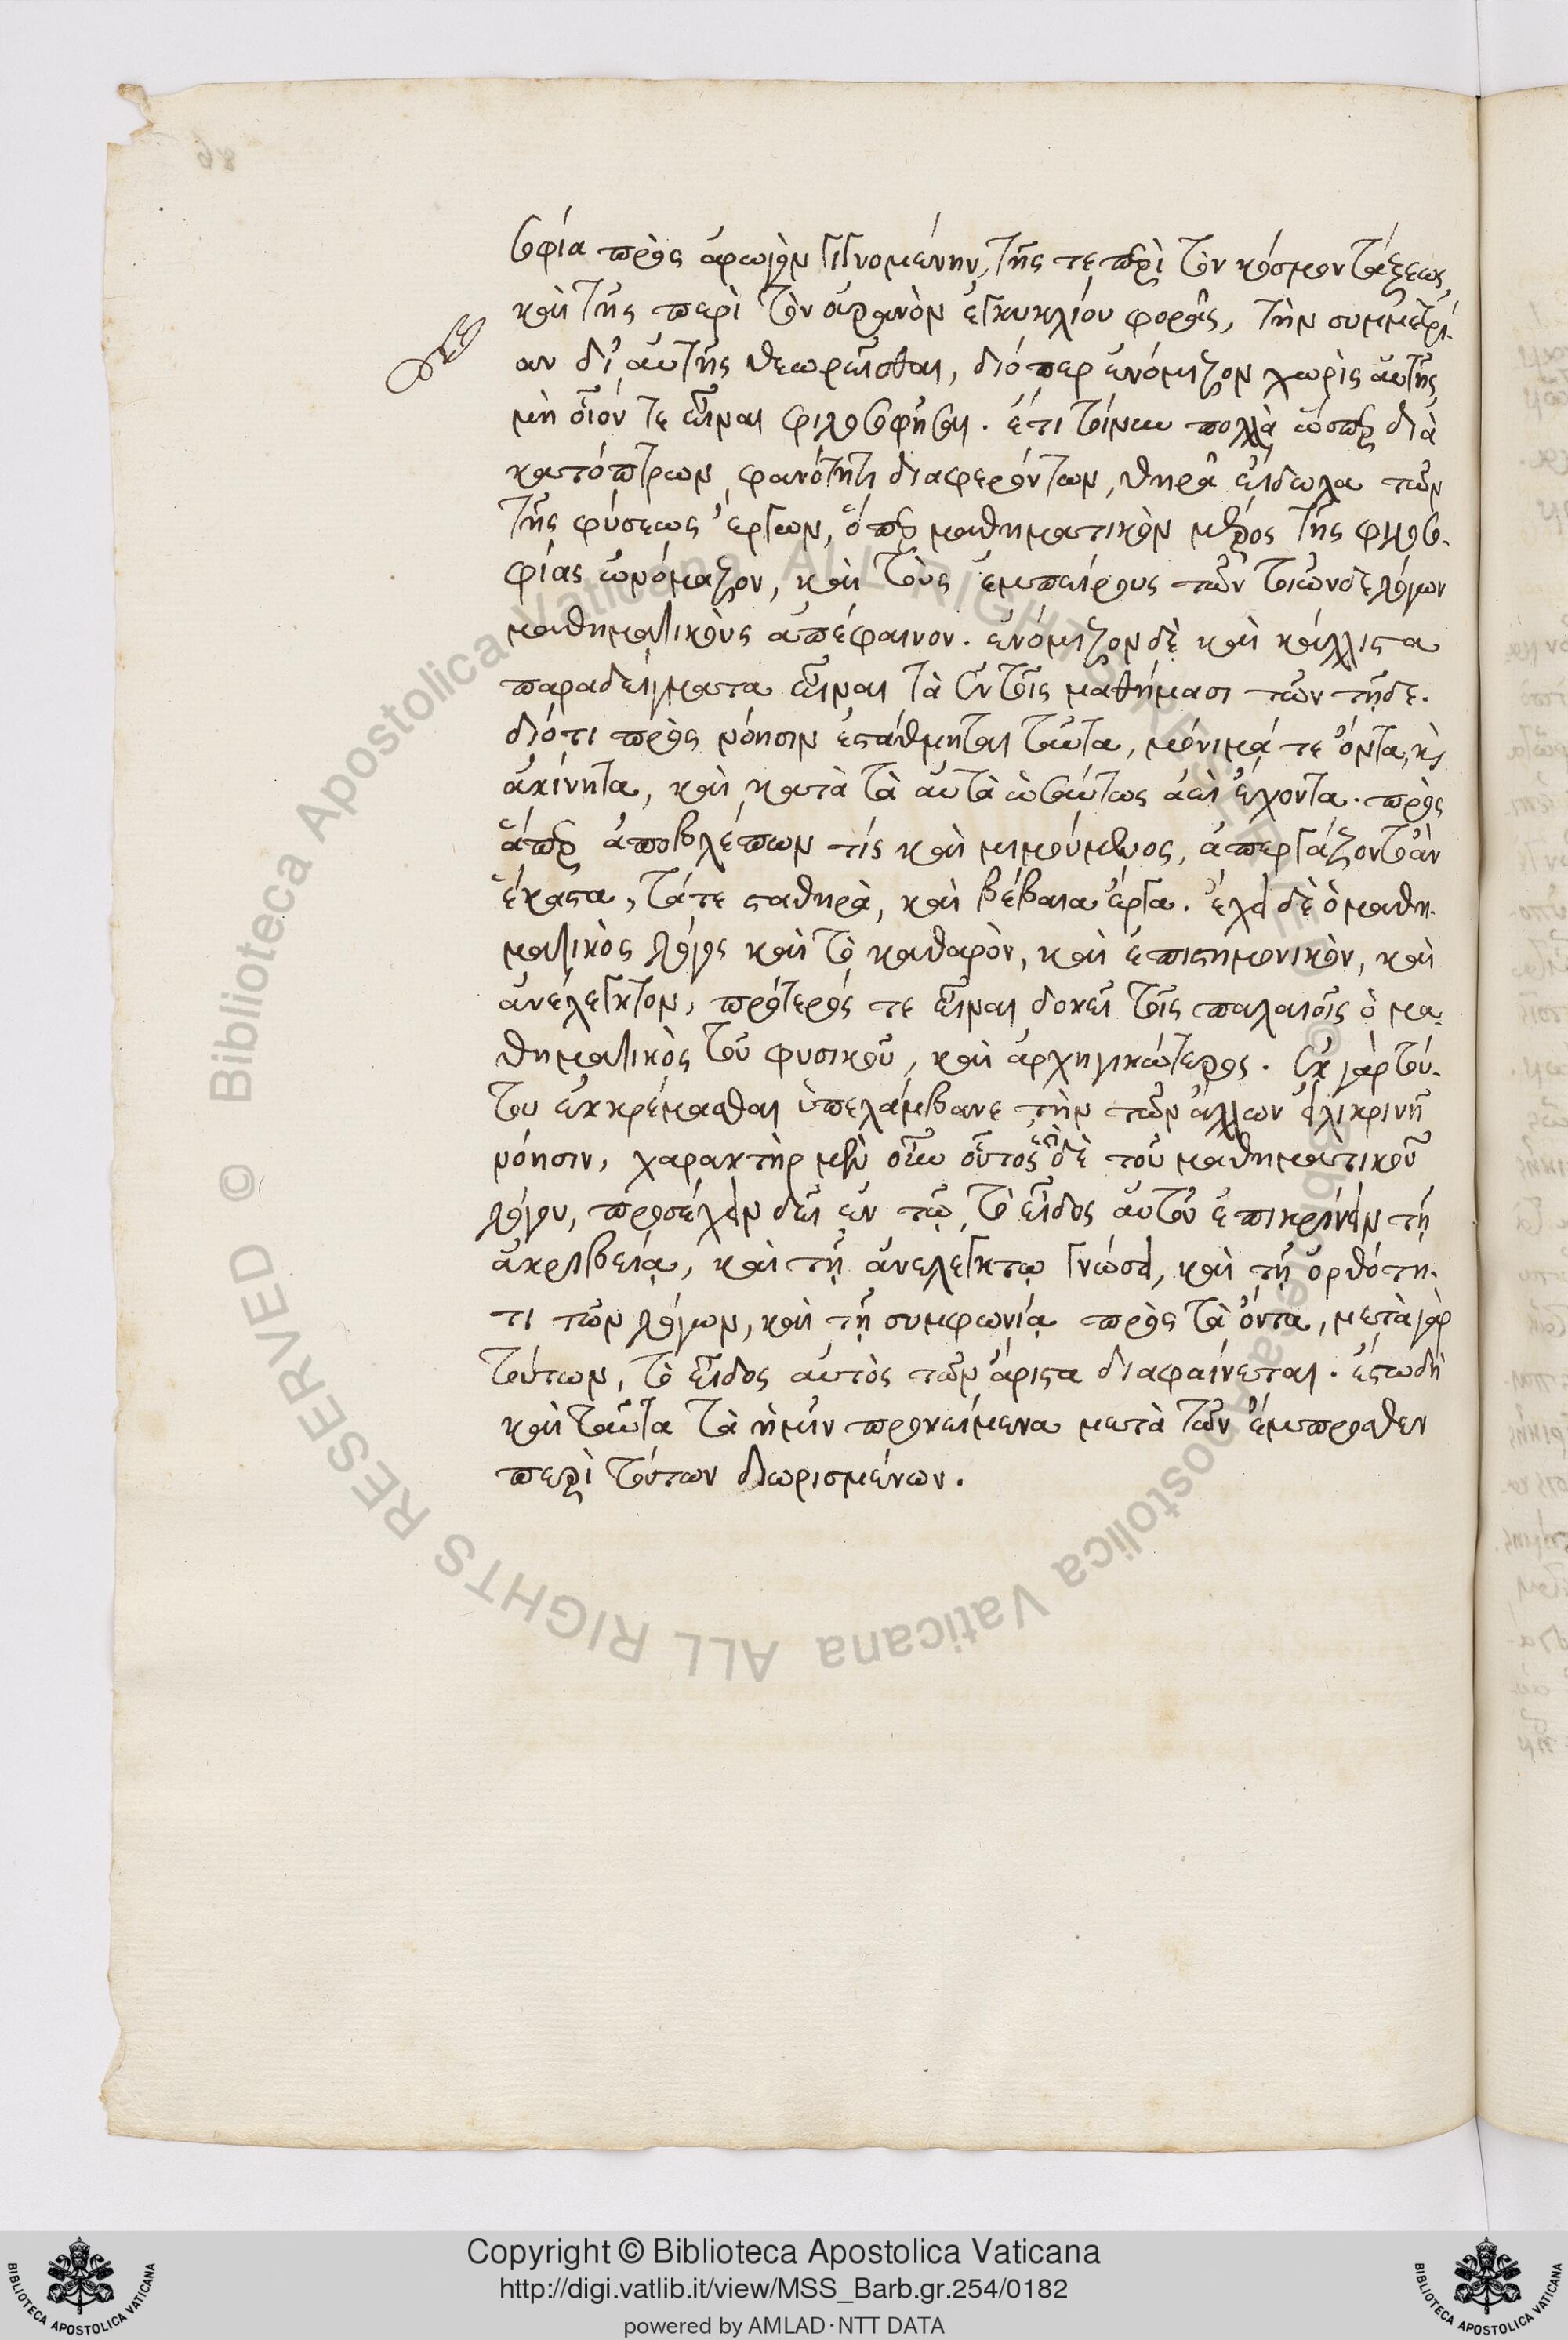 σοφία πρὸς ἀρωγὴν γιγνομένην, τῆς τε περὶ τὸν κόσμον τάξεως,
καὶ τῆς περὶ τὸν οὐρανὸν ἐγκυκλίου φορᾶς, τὴν συμμετρί-
αν δι' αὐτῆς θεωρεῖσθαι, διόπερ ἐνόμιζον χωρὶς αὐτῆς
μὴ οἷόν τε εἶναι φιλοσοφῆσαι. ἔτι τοίνυν πολλὰ ὥσπερ διὰ
κατόπτρων, φανότητι διαφερόντων, θηρᾷ εἴδωλα τῶν
τῆς φύσεως ἔργων, ὅπερ μαθηματικὸν μέρος τῆς φιλοσο-
φίας ὠνόμαζον, καὶ τοὺς ἐμπείρους τῶν τοιῶνδε λόγων
μαθηματικοὺς ἀπέφαινον. ἐνόμιζον δὲ καὶ κάλλιστα
παραδείγματα εἶναι τὰ ἐν τοῖς μαθήμασι τῶν τῇδε.
διότι πρὸς νόησιν ἐστάθμηται ταῦτα, μόνιμά τε ὄντα, καὶ
ἀκίνητα, καὶ κατὰ τὰ αὐτὰ ὡσαύτως ἀεὶ ἔχοντα. πρὸς
ἅπερ ἀποβλέπων τίς καὶ μιμούμενος, ἀπεργάζοντο ἂν
ἕκαστα, τά τε σταθηρὰ, καὶ βέβαια ἔργα. ἔχει δὲ ὁ μαθη-
ματικὸς λόγος καὶ τὸ καθαρὸν, καὶ ἐπιστημονικὸν, καὶ
ἀνέλεγκτον, πρότερός τε εἶναι δοκεῖ τοῖς παλαιοῖς ὁ μα-
θηματικὸς τοῦ φυσικοῦ, καὶ ἀρχηγικώτερος. ἐκ γὰρ τού-
του ἐκκρέμασθαι ὑπελάμβανε τὴν τῶν ἄλλων εἰλικρινῆ
νόησιν, χαρακτὴρ μὲν οὖν οὗτος ἐπὶ δὲ τοῦ μαθηματικοῦ
λόγου, προσέχειν δεῖ ἐν τῷ, τὸ εἶδος αὐτοῦ ἐπικρίνειν τῇ
ἀκριβείᾳ, καὶ τῇ ἀνελέγκτῳ γνώσει, καὶ τῇ ὀρθότη-
τι τῶν λόγων, καὶ τῇ συμφωνίᾳ πρὸς τὰ ὄντα, μετὰ γὰρ
τούτων, τὸ εἶδος αὐτὸς τῶν ἄριστα διαφαίνεται. ἔστω δὴ
καὶ ταῦτα τὰ ἡμῖν προκείμενα μετὰ τῶν ἔμπροσθεν
περὶ τούτων διωρισμένων.
Copyright © Biblioteca Apostolica Vaticana
http://digi.vatlib.it/view/MSS_Barb.gr.254/0182
powered by AMLAD·NTT DATA
BIBLIOTECA APOSTOLICA VATICANA
BIBLIOTECA APOSTOLICA VATICANA
© Biblioteca Apostolica Vaticana ALL RIGHTS RESERVED © Biblioteca Apostolica Vaticana ALL RIGHTS RESERVED